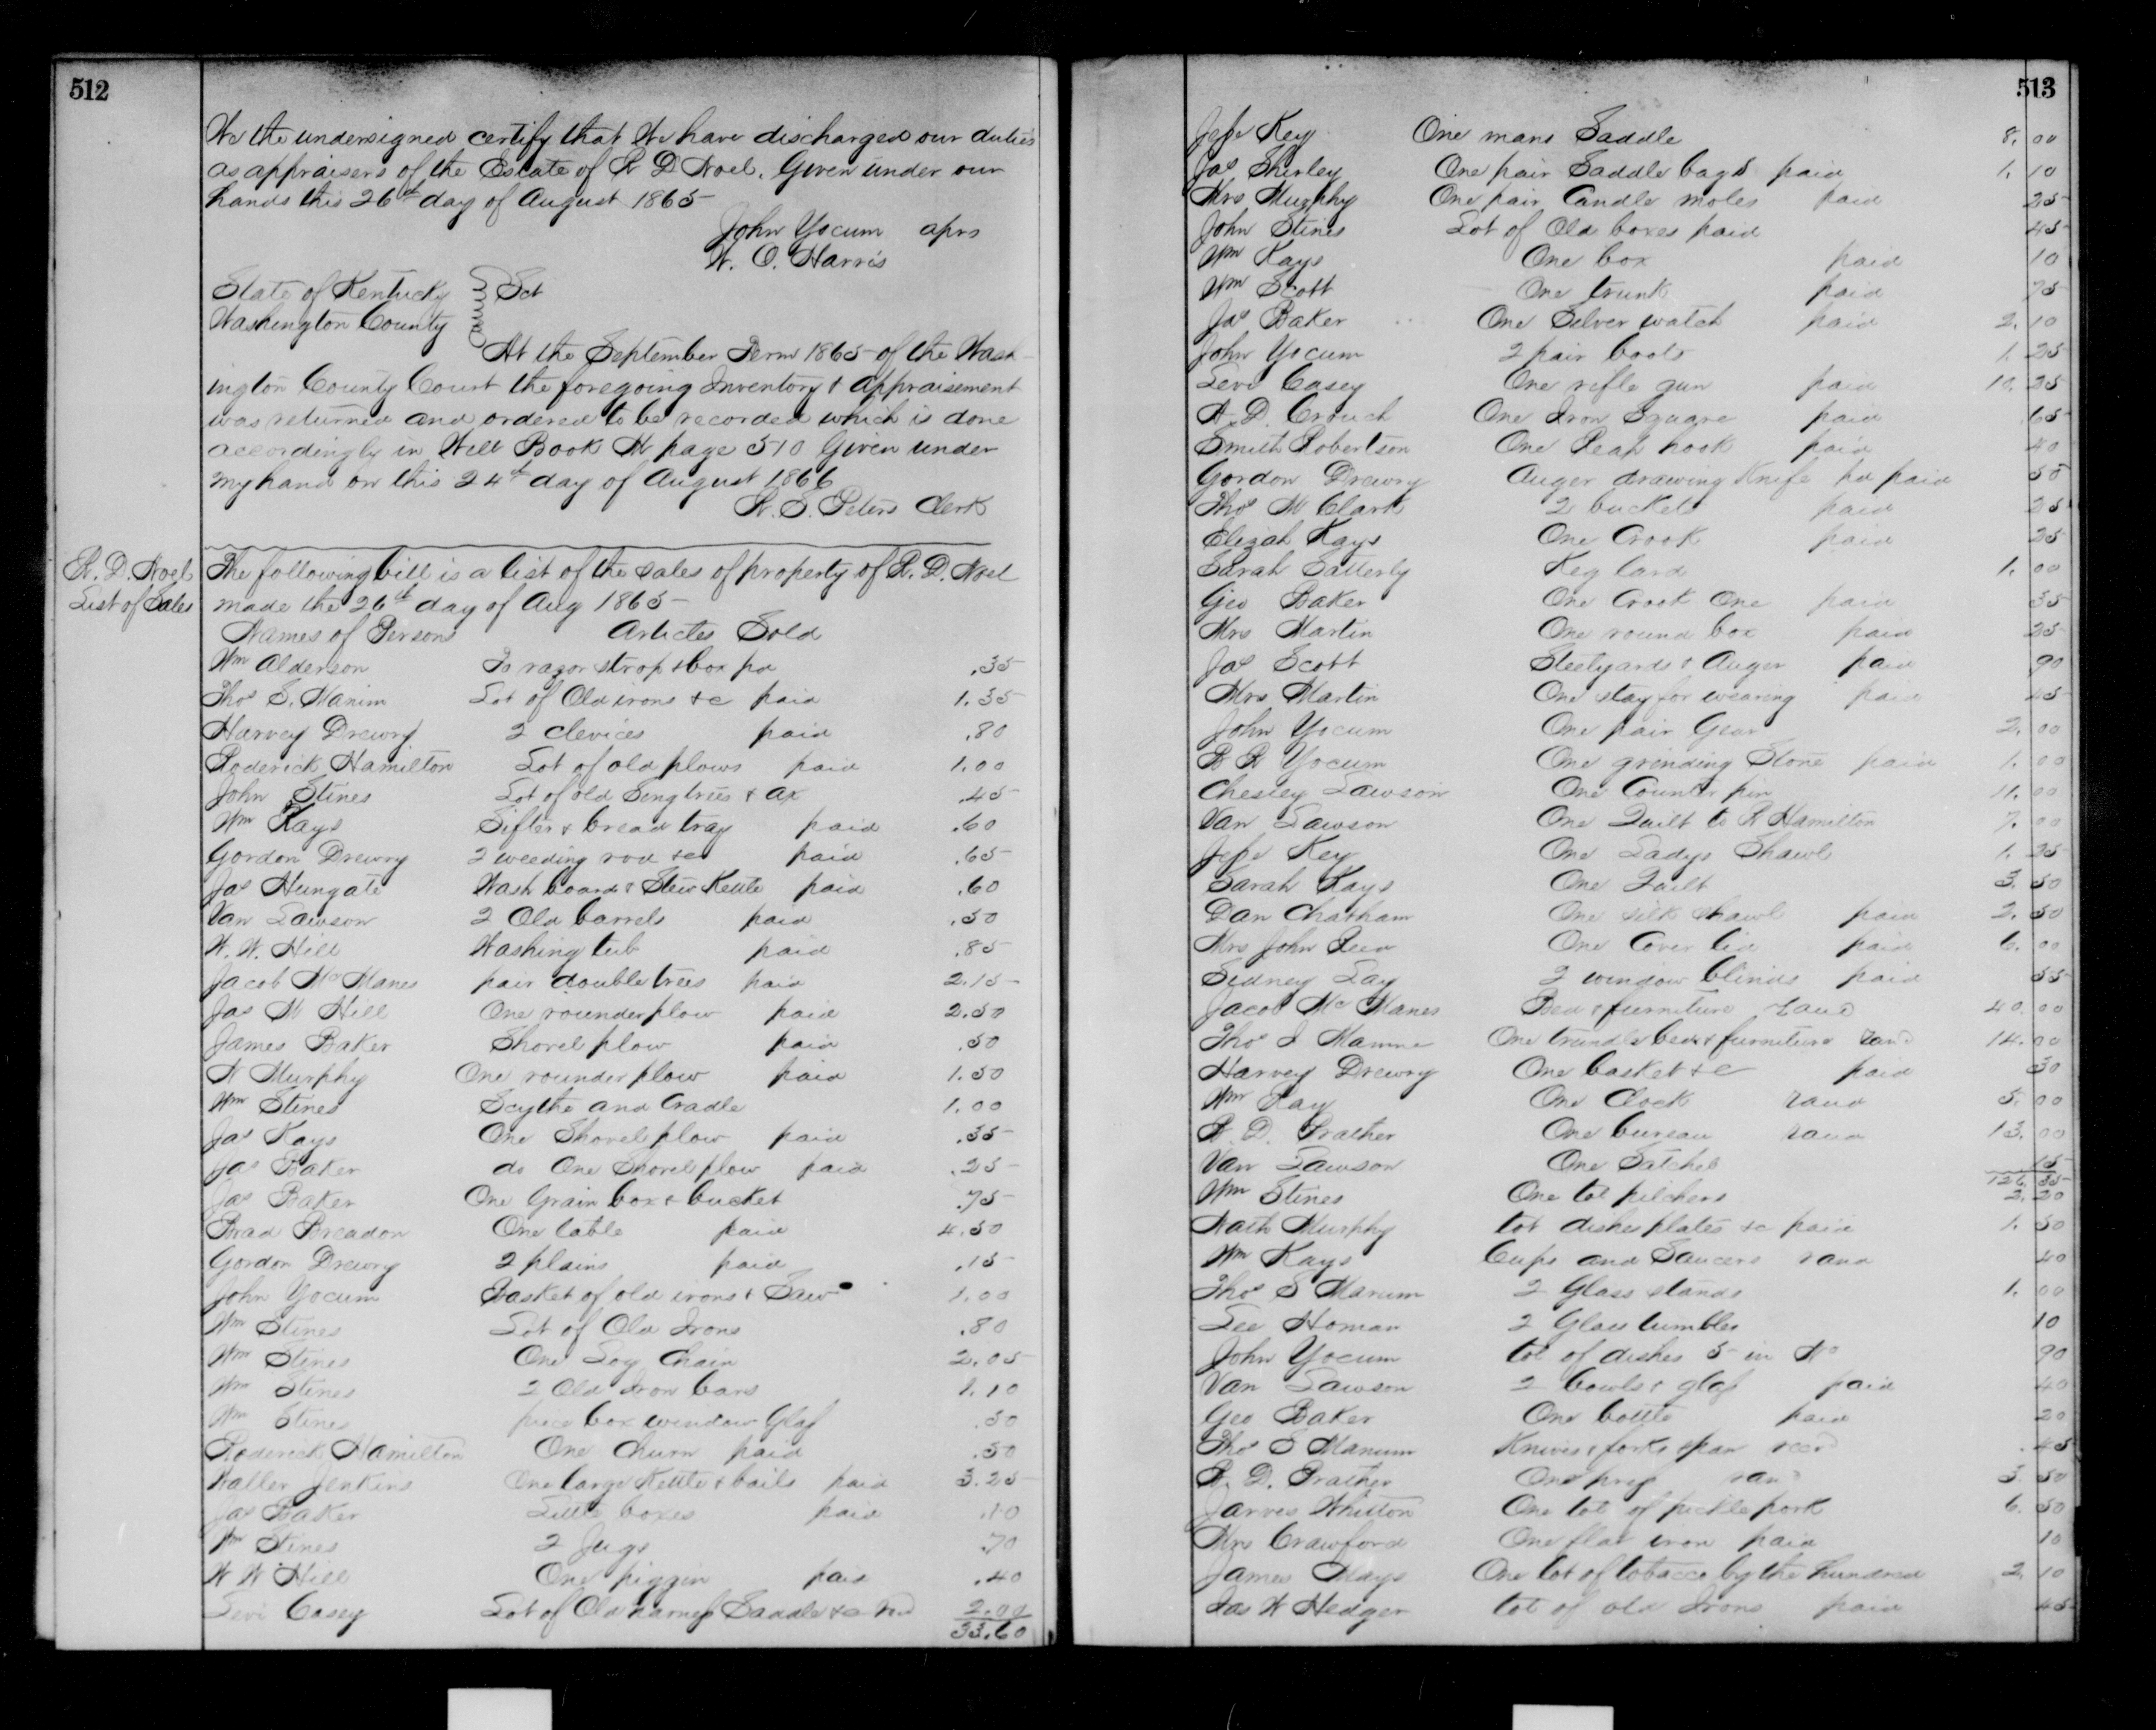 512
We the undersigned certify that We have discharged our duties
as appraisers of the Estate of R D Noel. Given under our
hands this 26th day of August 1865
John Yocum aprs
W. O. Harris
State of Kentucky } Sct
Washington County
At the September Term 1865 of the Wash
ington County Court the foregoing Inventory & Appraisement
was returned and ordered to be recorded which is done
accordingly in Will Book page 510 Given under
my hand on this 24th day of August 1866
W. S. Peters Clerk
R. D. Noel
List of Sales
The following bill is a list of the sales of property of R. D. Noel
made the 26th day of Aug 1865
Names of Persons Articles Sold
Wm Alderson To razor strop & box pd .35
Thos S. Manim Lot of Old irons &c paid 1.35
Harvey Drewry 2 clevices paid .80
Roderick Hamilton Lot of old plows paid 1.00
John Stines Lot of old Singtrees & ax .45
Wm Kays Sifter & bread tray paid .60
Gordon Drewry 2 weeding &c paid .65
Jas Hungate Wash board & Stew Kettle paid .60
Van Lawson 2 Old barrels paid .50
W. W. Hill Washing tub paid .85
Jacob McManes pair double trees paid 2.15
Jas W Hill One rounder plow paid 2.50
James Baker Shovel plow paid .50
N Murphy One rounder plow paid 1.50
Wm Stines Scythe and Cradle 1.00
Jas Kays One Shovel plow paid .35
Jas Baker do One Shovel plow paid .25
Jas Baker One Grain box & bucket .75
Brad Breadon One table paid 4.50
Gordon Drewry 2 plains paid .15
John Yocum Basket of old irons & Saw 1.00
Wm Stines Lot of Old Irons .80
Wm Stines One Log Chain 2.05
Wm Stines 2 Old Iron bars 1.10
Wm Stines piece box window Glass .50
Roderick Hamilton One Churn paid .50
Waller Jenkins One large Kettle & bails paid 3.25
Jas Baker Little boxes paid .10
Wm Stines 2 Jugs .70
W W Hill One piggin paid .40
Levi Casey Lot of Old harness Saddle &c 2.00
33.60
513
Jesse Key One mans Saddle 8.00
Jas Shirley One pair Saddle bags paid 1.10
Mrs Murphy One pair Candle moles paid 25
John Stines Lot of Old boxes paid 45
Wm Kays One box paid 10
Wm Scott One trunk paid 75
Jas Baker One Silver watch paid 2.10
John Yocum 2 pair boots 1.25
Levi Casey One rifle gun paid 10.25
A. D. Crouch One Iron Square paid .65
Smith Robertson One Reap hook paid 40
Gordon Drewry Auger drawing Knife pd paid 50
Thos M Clark 2 buckets paid 25
Elizah Kays One Crook paid 25
Sarah Satterly Keg lard 1.00
Geo Baker One Crook One paid 35
Mrs Martin One round box paid 25
Jas Scott Steelyards & Auger paid 90
Mrs Martin One stay for wearing paid 45
John Yocum One pair Gear 2.00
R R Yocum One grinding Stone paid 1.00
Chesley Lawson One Counter pin 11.00
Van Lawson One Quilt to R Hamilton 7.00
Jesse Key One Ladys Shawl 1.25
Sarah Kays One Quilt 3.50
Dan Chatham One silk shawl paid 2.50
Mrs John One Cover lid paid 6.00
Sidney Lay 2 window blinds paid 55
Jacob McManes Bed & furniture 40.00
Thos One trundle bed & furniture 14.00
Harvey Drewry One basket &c paid 30
Wm Ray One Clock 5.00
R. D. Prather One bureau 13.00
Van Lawson One Satchel 15
Wm Stines One lot pitchers 2.20
Nath Murphy lot dishes plates &c paid 1.50
Wm Kays Cups and Saucers 40
Thos S Manum 2 Glass stands 1.00
Lee Homan 2 Glass tumbles 10
John Yocum lot of dishes 5 in No 90
Van Lawson 2 bowls & glass paid 40
Geo Baker One bottle paid 20
Thos S Manum Knives & forks .45
R. D. Prather One press 3.50
Jarves Whitton One lot of pickle pork 6.50
Mrs Crawford One flat iron paid 10
James Mays One lot of tobacco by the hundred 2.10
Jas W Hedger lot of old Irons paid 45